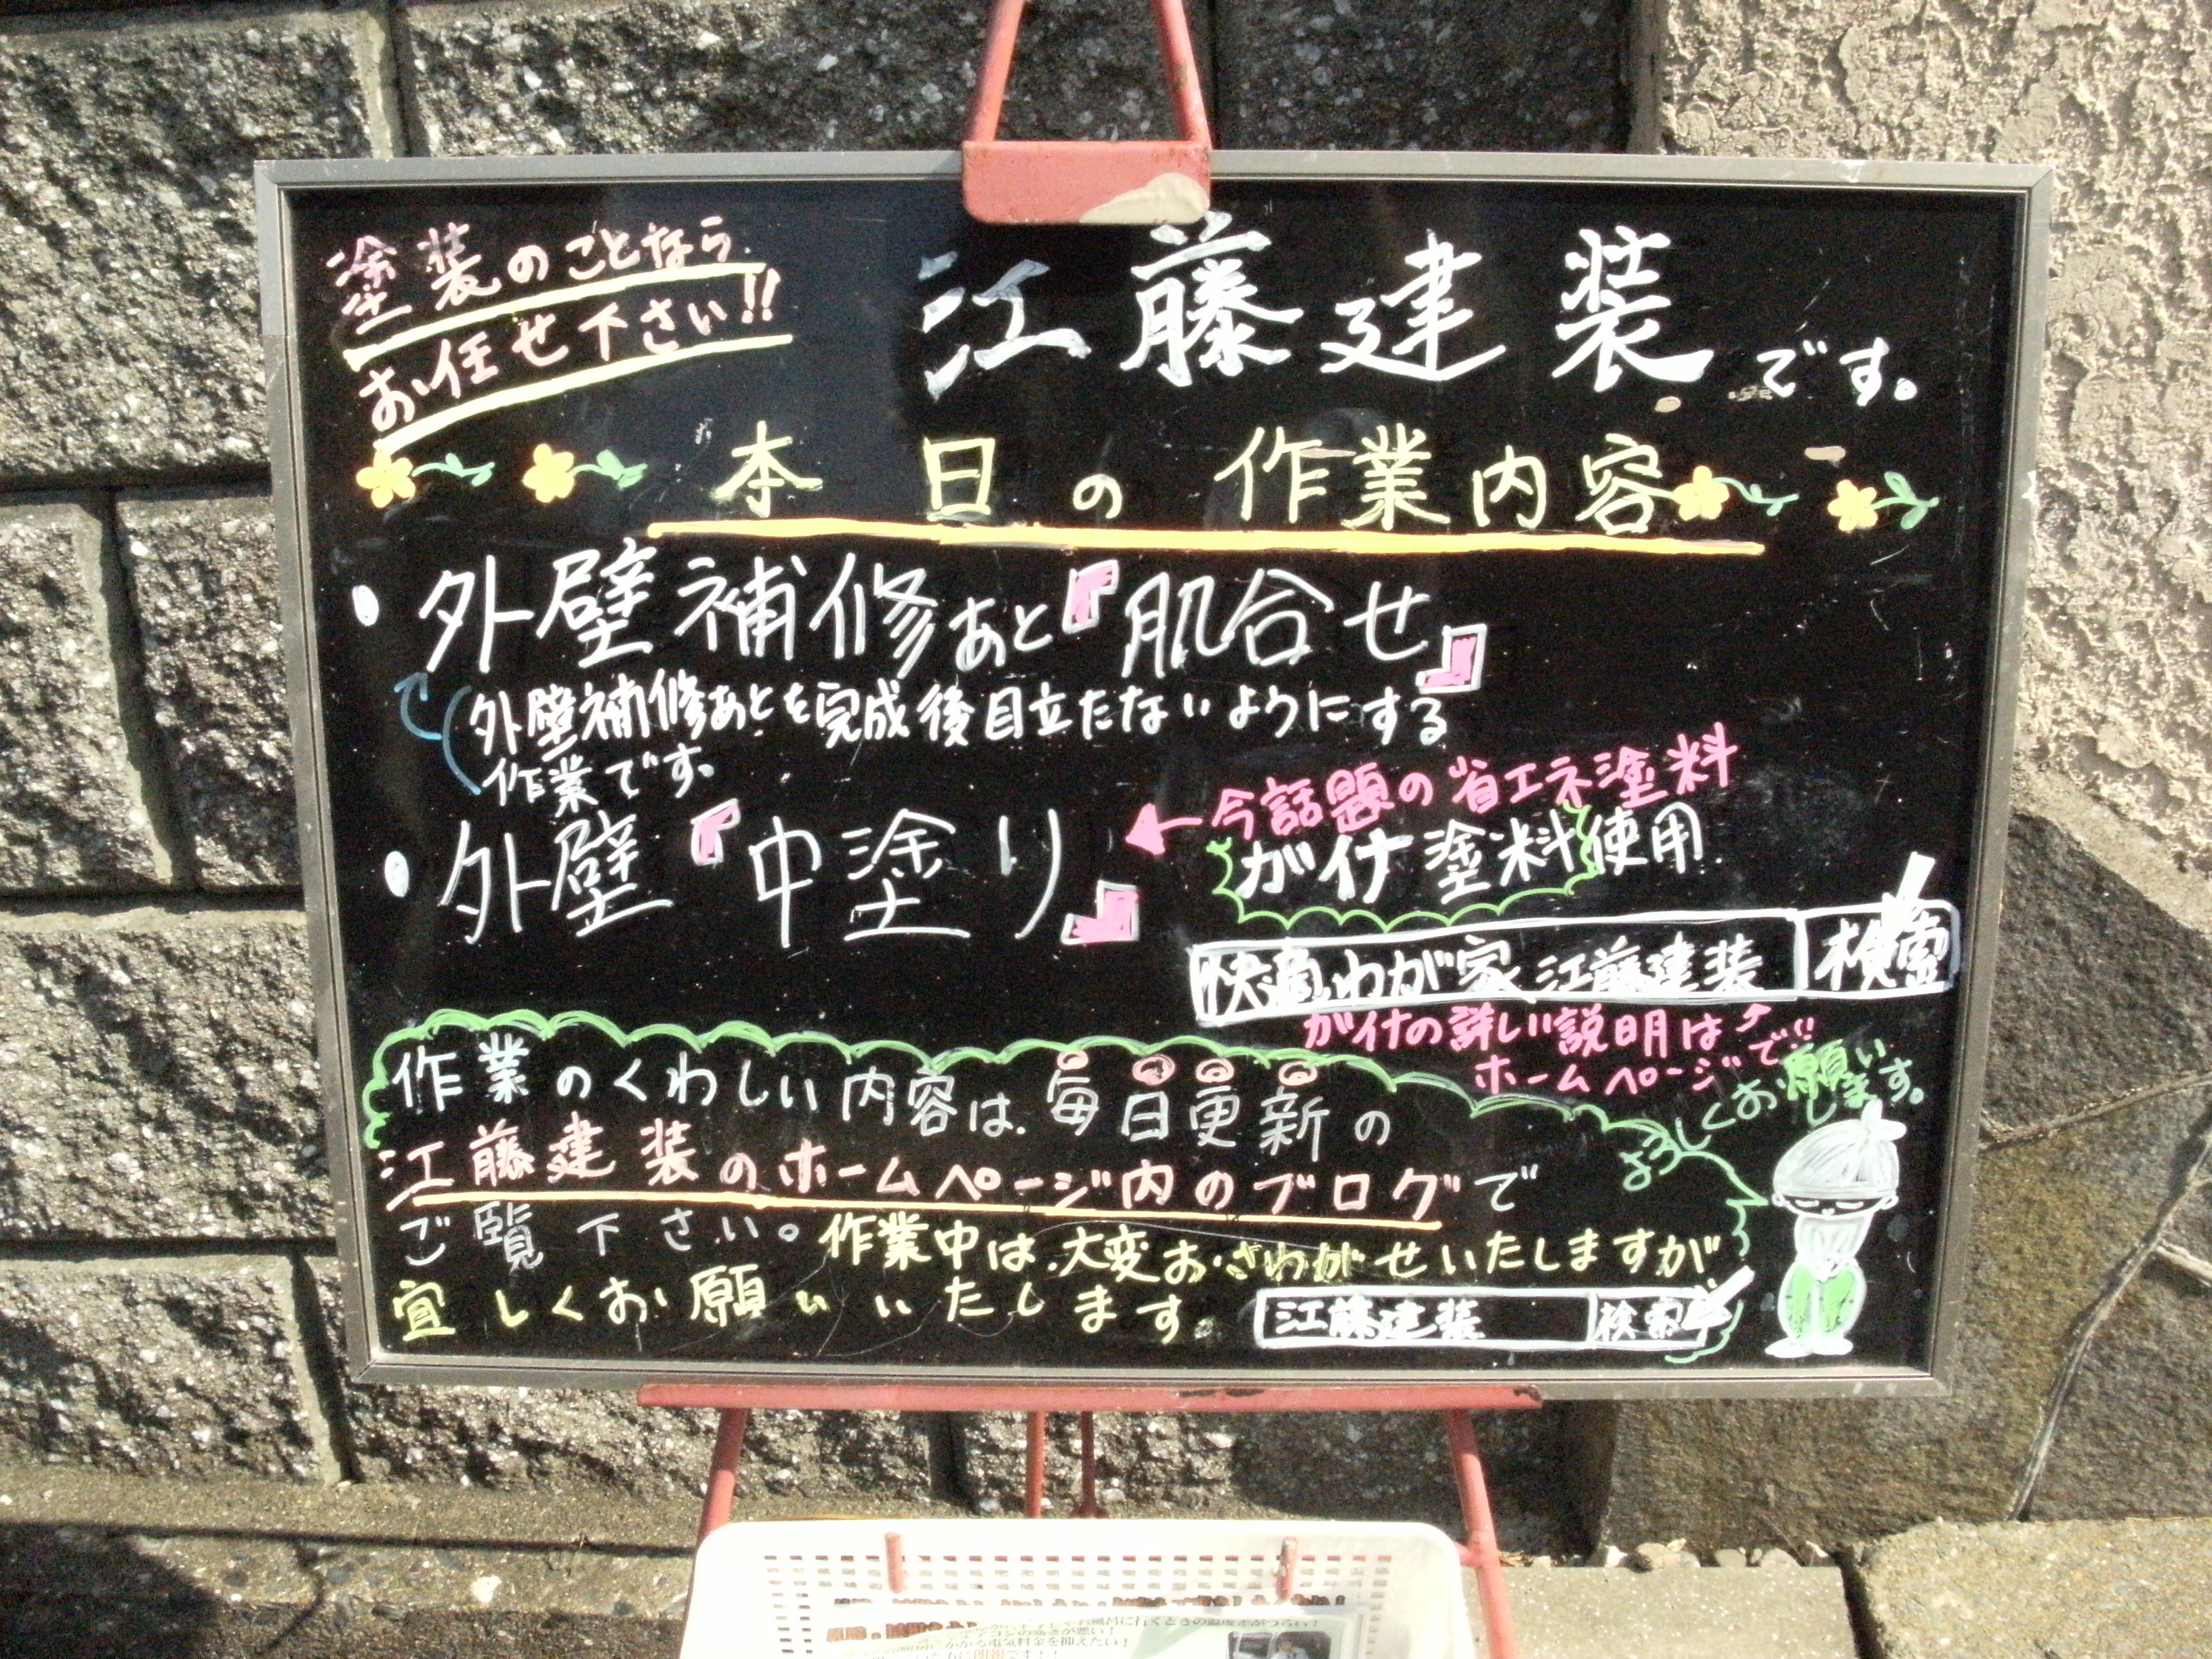 塗装のことなら
お任せ下さい!!
江藤建装です。
本日の作業内容
・外壁補修あと『肌合せ』
外壁補修あとを完成後目立たないようにする
作業です。
・外壁『中塗り』
←今話題の省エネ塗料
ガイナ塗料使用
快適わが家 江藤建装 検索
ガイナの詳しい説明は
ホームページで!!
作業のくわしい内容は、毎日更新の
江藤建装のホームページ内のブログで
ご覧下さい。作業中は大変おさわがせいたしますが
宜しくお願いいたします。
江藤建装 検索
よろしくお願い
します。
にかかる電気料金を抑えたい!